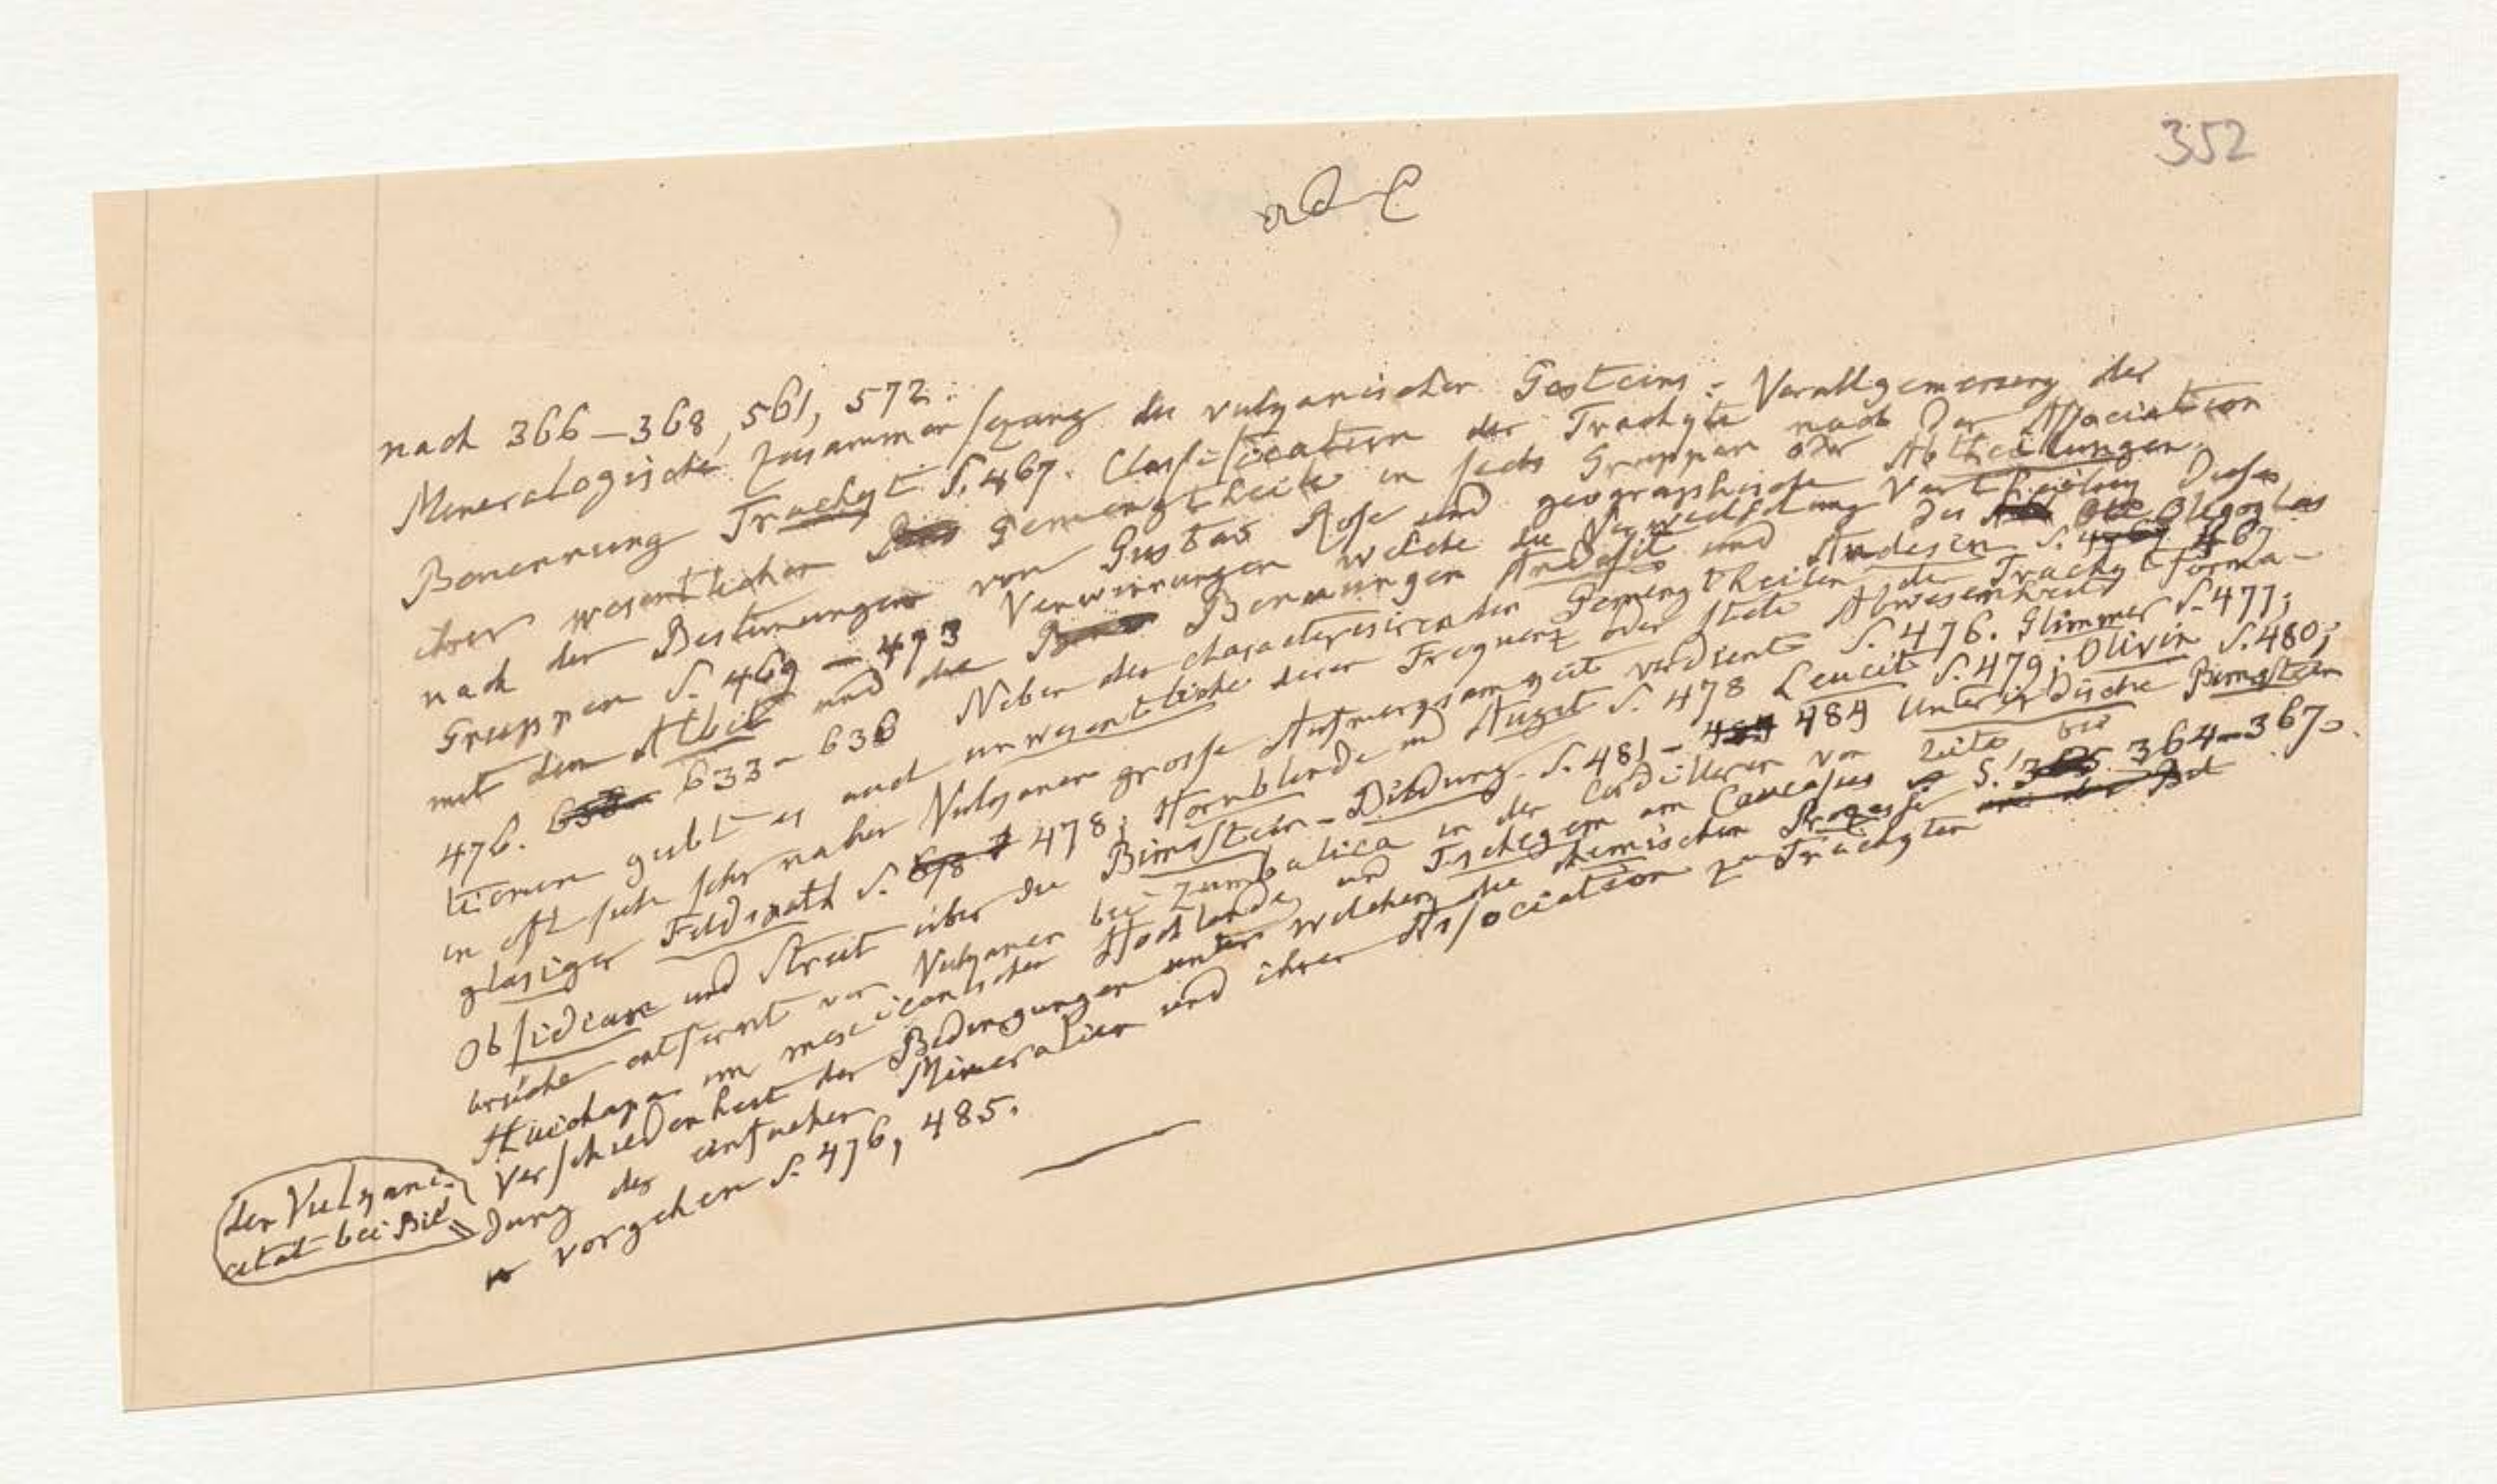 352
nach 366–368, 561, 572.
Mineralogische Zusammensezung des vulkanischen Gesteins: Verallgemeinerung der
Benennung Trachyt S. 467. Classification der Trachyte nach der Association
ihrer wesentlichen Gemengtheile in sechs Gruppen oder Abtheilungen
nach den Bestimungen von Gustav Rose und geographische Vertheilung dieser
Gruppen S. 469–473 Verwirrungen welche die Verwechslung des Oligoglas
mit dem Albit und die Benenungen Andesit und Andesin S. 467
476. 633–636 Neben den characterisirenden Gemengtheilen der Trachyt Forma-
tionen gibt es auch unwesentliche deren Frequenz oder stete Abwesenheit
in oft sich sehr nahen Vulkanen grosse Aufmerksamkeit verdient S. 476. Glimmer S. 477;
glasiger Feldspath S. 478; Hornblende und Augit S. 478 Leucit S. 479; Olivin S. 480;
Obsidian und Streit über die Bimsstein-Bildung S. 481– 484 Unterirdische Bimsstein
brüche entfernt von Vulkanen bei Zumbalica in den Cordilleren von Quito bei
Huichapa im mexicanischen Hochlande und Tschegem am Caucasus S. 364–367.
Verschiedenheit der Bedingungen unter welchen die chemischen Prozesse
der Vulkani-
citat bei Bil
dung der einfachen Mineralien und ihrer Association zu Trachyten
vorgehen S. 476, 485.